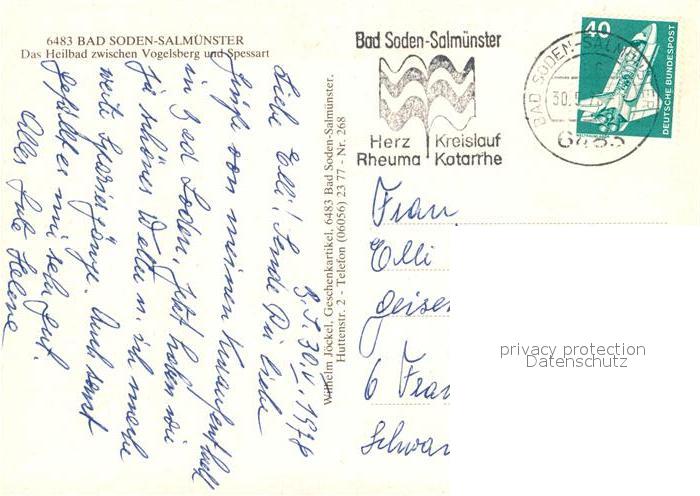 6483 BAD SODEN-SALMÜNSTER
Das Heilbad zwischen Vogelsberg und Spessart
B. S. 30.V. 1976
Liebe Elli! Sende Dir liebe
Grüße von meinem Kuraufenthalt
in Bad Soden. Jetzt haben wir
schönes Wetter u. ich mache
weite Spaziergänge. Auch sonst
gefällt es mir sehr gut.
Alles Gute Helene
Wilhelm Jöckel, Geschenkartikel, 6483 Bad Soden-Salmünster.
Huttenstr. 2 - Telefon (06056) 23 77 - Nr. 268
Bad Soden-Salmünster
Herz Kreislauf
Rheuma Katarrhe
BAD SODEN-SALMÜNSTER
30.
6483
40
DEUTSCHE BUNDESPOST
Frau
Elli
Geisen
6 Fran
Schwar
privacy protection
Datenschutz